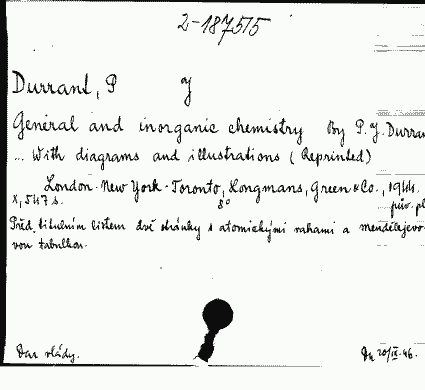 2-187515
Durrant, P J
General and inorganic chemistry By P. J. Durran
... With diagrams and illustrations (Reprinted)
London - New York - Toronto, Longmans, Green & Co., 1944.
X, 547 s. 8° pův. pl
Před titulním listem dvě stránky s atomickými vahami a mendělejevo-
vou tabulkou.
Dar vlády. 20/IX.46.